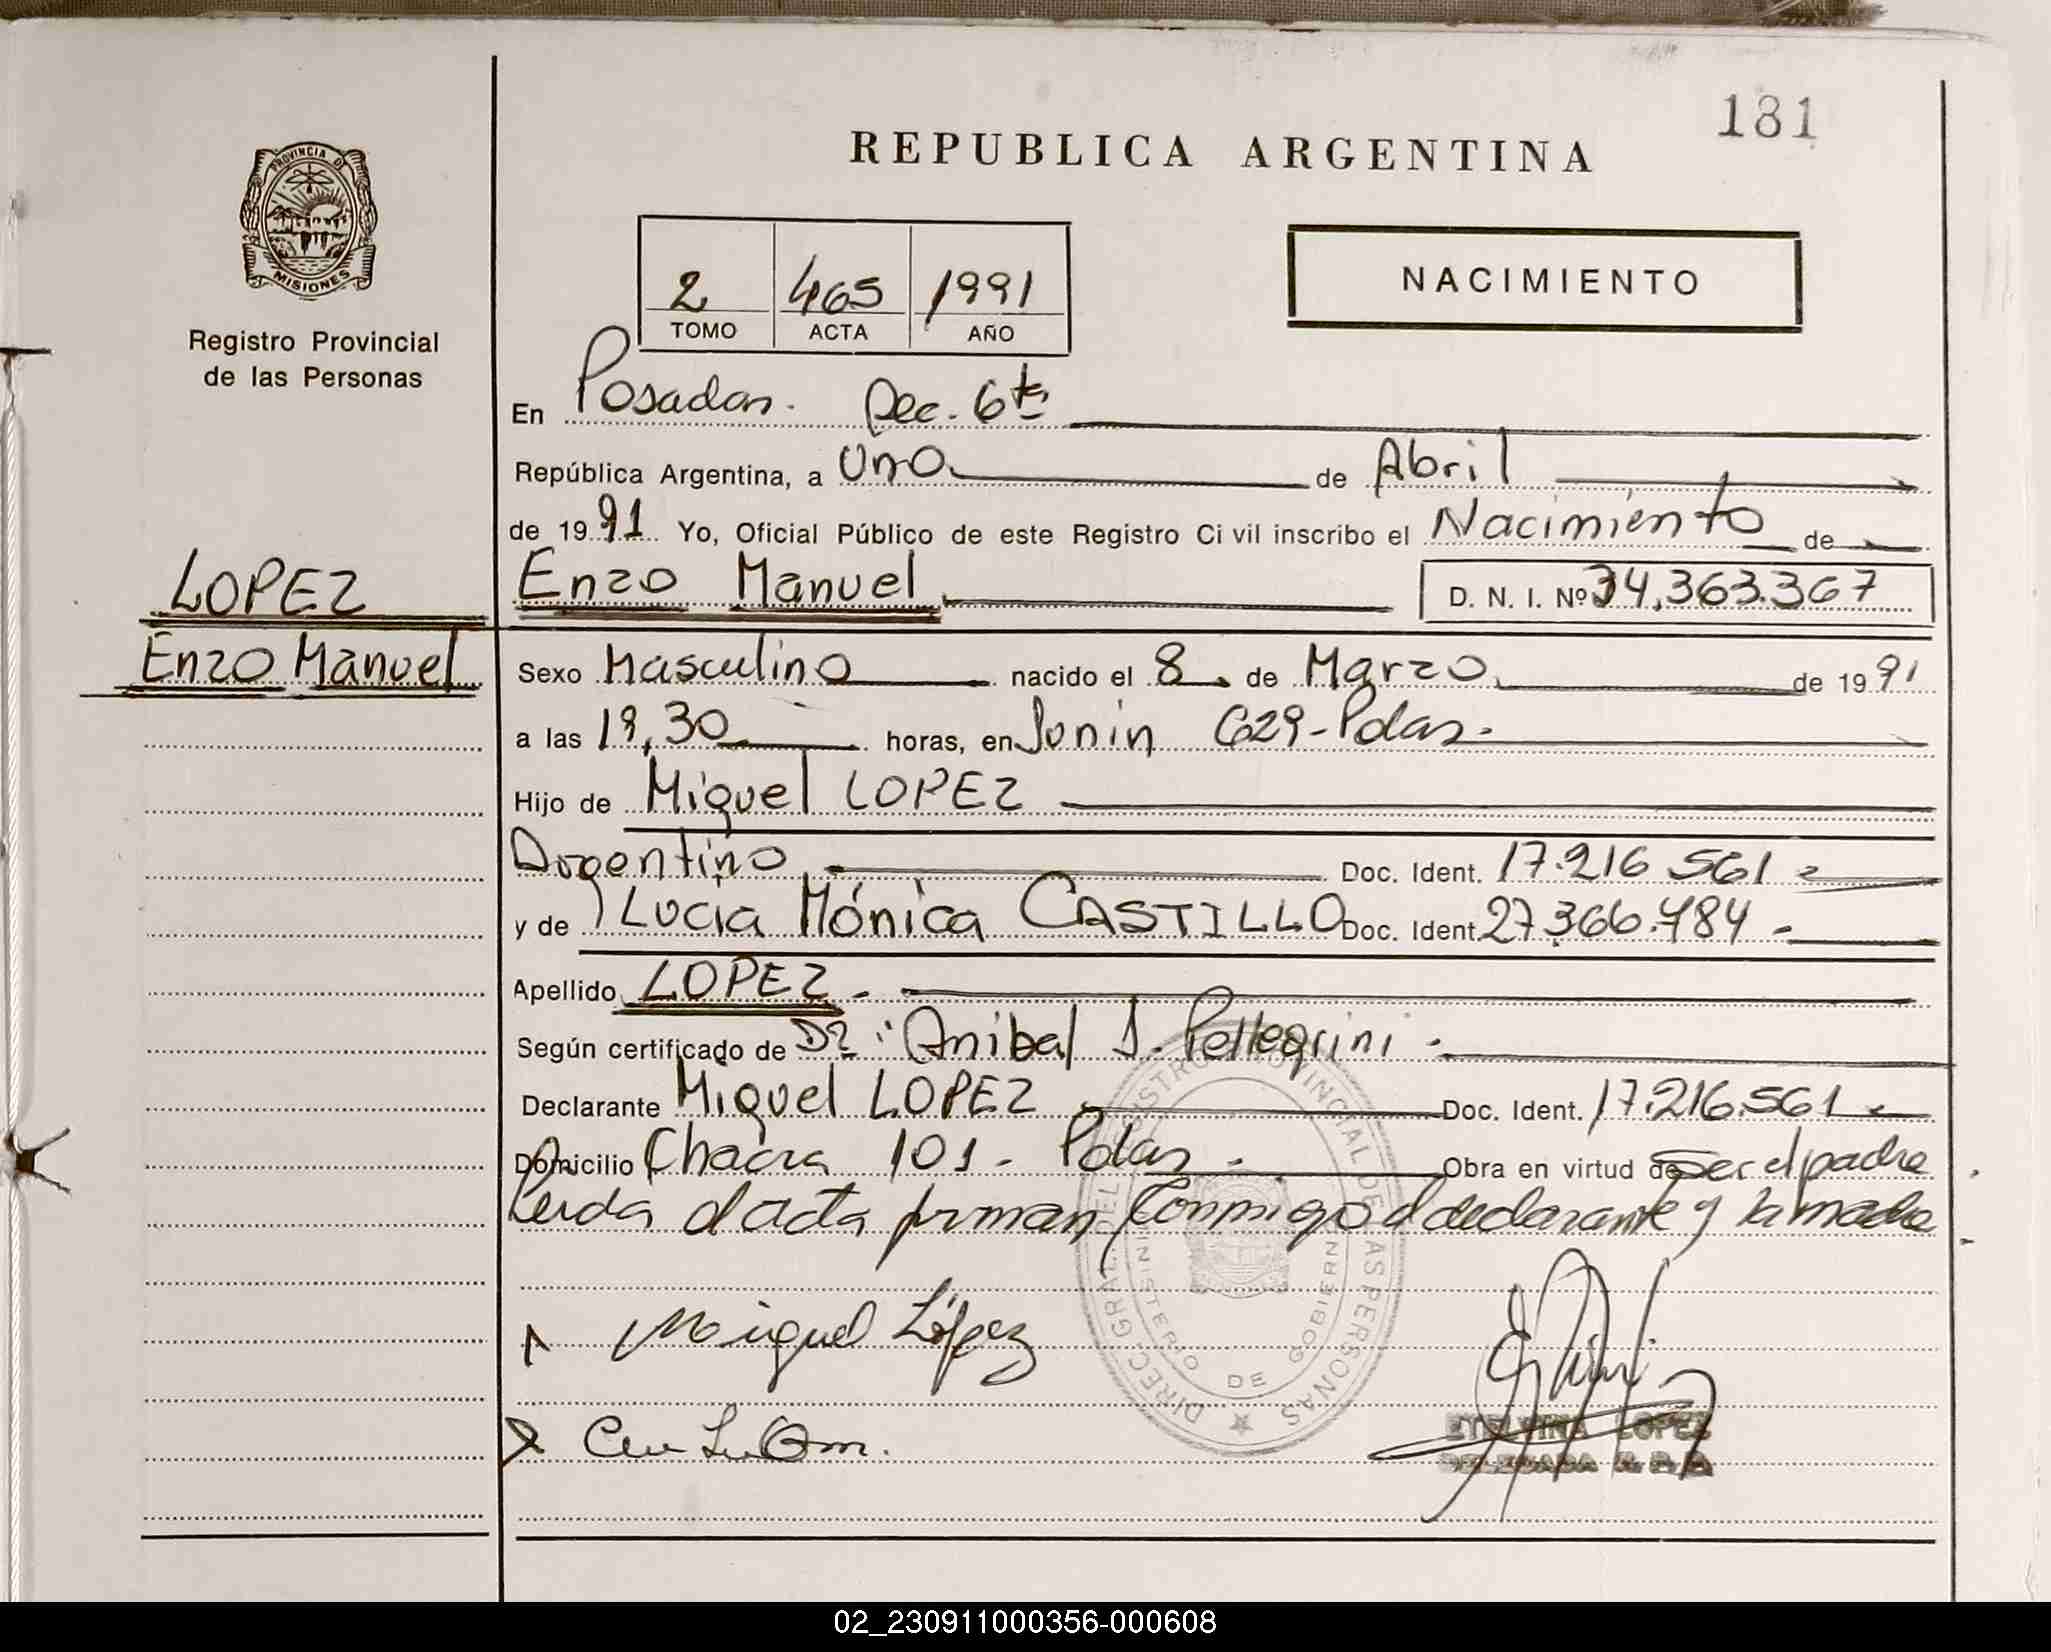 181
REPUBLICA ARGENTINA
PROVINCIA DE
MISIONES
Registro Provincial
de las Personas
NACIMIENTO
2 465 1991
TOMO ACTA AÑO
En Posadas. Sec. 6ta
República Argentina, a Uno de Abril
de 1991 Yo, Oficial Público de este Registro Civil inscribo el Nacimiento de
LOPEZ
Enzo Manuel D. N. I. Nº 34.363.367
Enzo Manuel
Sexo Masculino nacido el 8 de Marzo de 1991
a las 19,30 horas, en Junin 629-Pdas.
Hijo de Miguel LOPEZ
Argentino Doc. Ident. 17.216 561
y de Lucia Mónica CASTILLO Doc. Ident. 27.366.784
Apellido LOPEZ
Según certificado de Dr. "Anibal J. Pellegrini
Declarante Miguel LOPEZ Doc. Ident. 17.216.561
Domicilio Chacra 101 - Pdas. Obra en virtud de Ser el padre
Leida el acta firman conmigo el declarante y la madre
DIREC. GRAL. DEL REGISTRO PROVINCIAL DE LAS PERSONAS
MINISTERIO DE GOBIERNO
Miguel López
ETELVINA LOPEZ
DELEGADA R.P.P.
02_230911000356-000608